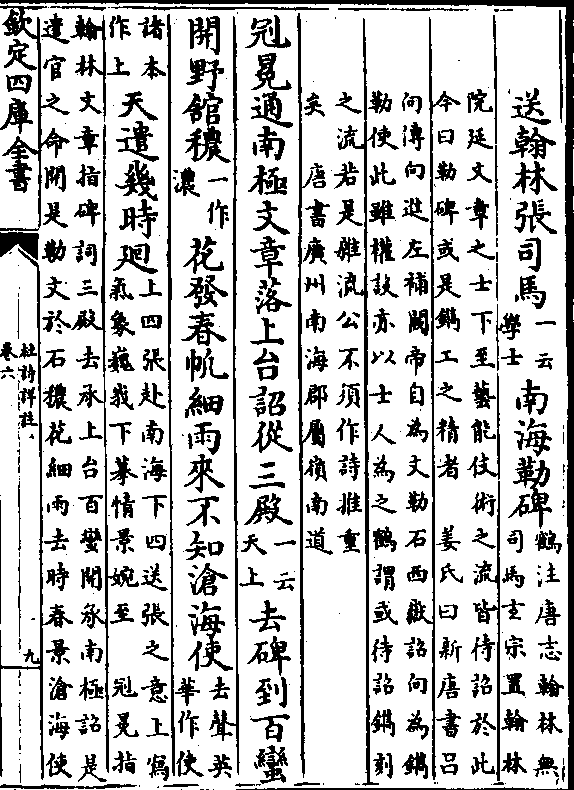 送翰林張司馬一云學士南海勒碑鶴注唐志翰林無司馬玄宗置翰林
院延文章之士下至藝能伎術之流皆待詔於此
今曰勒碑或是鐫工之精者 姜氏曰新唐書呂
向傳向進左補闕帝自為文勒石西嶽詔向為鐫
勒使此雖權設亦以士人為之鶴謂或待詔鐫刻
之流若是雜流公不須作詩推重
矣 唐書廣州南海郡屬嶺南道
冠冕通南極文章落上台詔從三殿一云天上去碑到百蠻
開野館穠一作濃花發春帆細雨來不知滄海使去聲英華作使
諸本作上天遣幾時廻上四張赴南海下四送張之意上寫氣象巍峩下摹情景婉至 冠冕指
翰林文章指碑詞三殿去承上台百蠻開承南極詔是
遣官之命開是勒文於石穠花細雨去時春景滄海使
欽定四庫全書
杜詩詳註
卷六
九